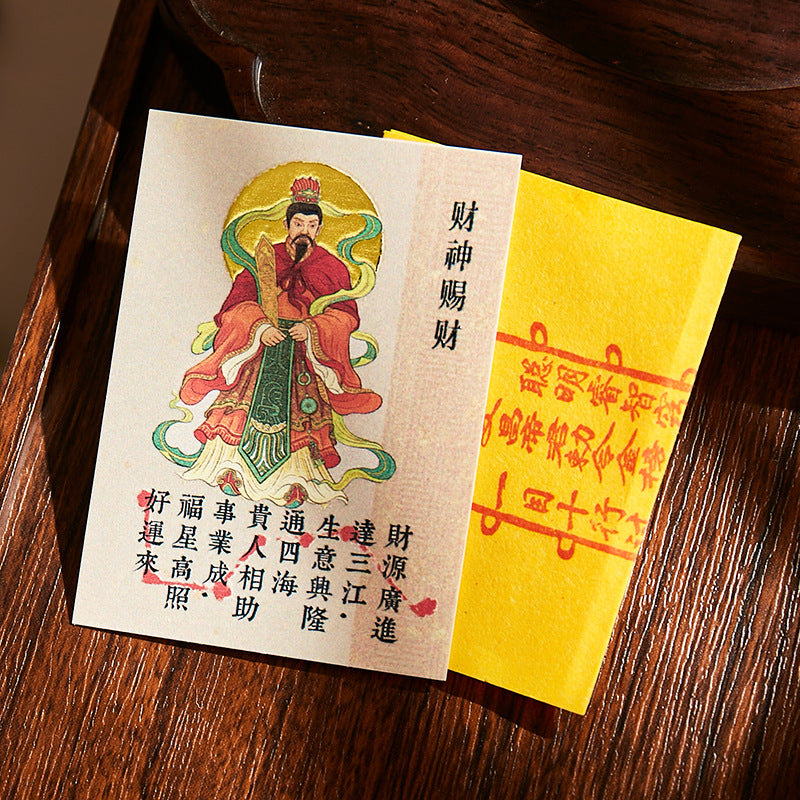 财神赐财
財源廣進
達三江·
生意興隆
通四海
貴人相助
事業成·
福星高照
好運來
聪明睿智
昌帝君敕令金榜
一目十行